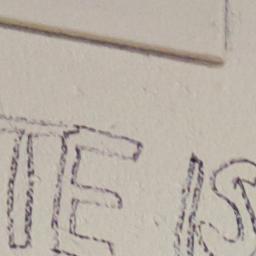 TE IS